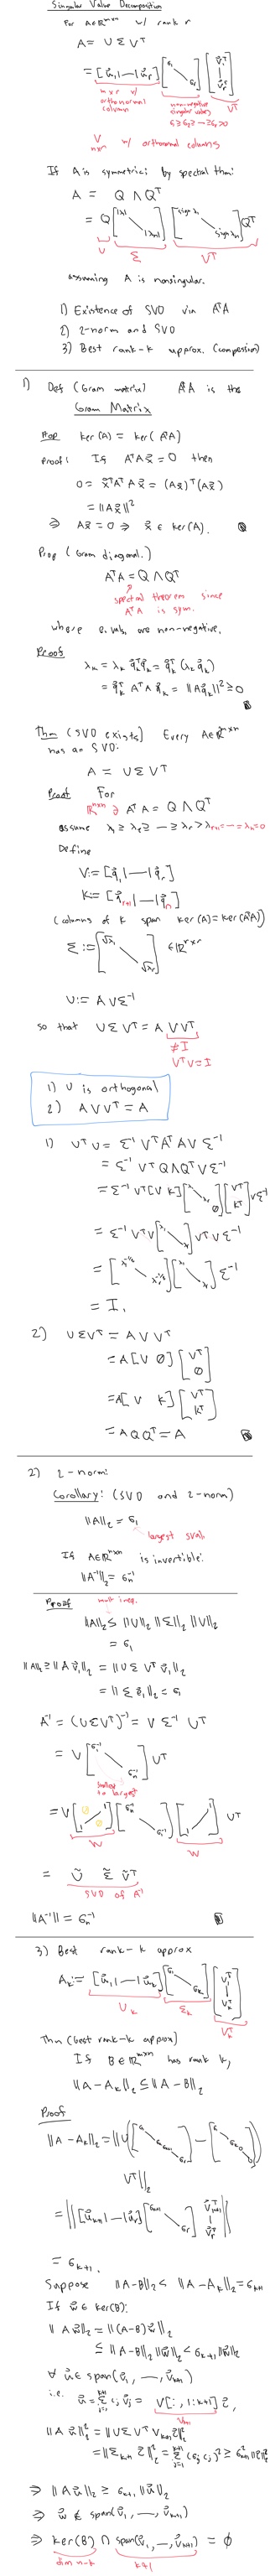 Singular Value Decomposition
For A∈ℝ^{m×n} w/ rank r
A = U Σ V^T
= [u⃗_1|—|u⃗_r] [σ_1 ⋱ σ_r] [v⃗_1^T | v⃗_r^T]
m×r w/ orthonormal column
nonnegative singular values
σ_1≥σ_2≥—≥σ_r>0
V^T
V n×r w/ orthonormal columns
If A is symmetric: by spectral thm:
A = Q Λ Q^T
= Q [|λ_1| ⋱ |λ_n|] [sign λ_1 ⋱ sign λ_n] Q^T
U Σ V^T
assuming A is nonsingular.
1) Existence of SVD via A^TA
2) 2-norm and SVD
3) Best rank-k approx. (compession)
1) Def (Gram matrix) A^TA is the
Gram Matrix
Prop ker(A) = ker(A^TA)
Proof: If A^TAx⃗ = 0 then
0 = x⃗^TA^TAx⃗ = (Ax⃗)^T(Ax⃗)
= ||Ax⃗||^2
⇒ Ax⃗ = 0 ⇒ x⃗ ∈ ker(A).
Prop (Gram diagonal.)
A^TA = Q Λ Q^T
spectral theorem since
A^TA is sym.
where e.vals. are non-negative.
Proof:
λ_k = λ_k q⃗_k^T q⃗_k = q⃗_k^T (λ_k q⃗_k)
= q⃗_k^T A^TA q⃗_k = ||Aq⃗_k||^2 ≥ 0
Thm (SVD exists) Every A∈ℝ^{m×n}
has an SVD:
A = U Σ V^T
Proof For
ℝ^{n×n} ∋ A^TA = Q Λ Q^T
assume λ_1 ≥ λ_2 ≥ — ≥ λ_r > λ_{r+1} = — = λ_n = 0
Define
V := [q⃗_1|—|q⃗_r]
K := [q⃗_{r+1}|—|q⃗_n]
(columns of K span ker(A) = ker(A^TA))
Σ := [√λ_1 ⋱ √λ_r] ∈ ℝ^{r×r}
U := A V Σ^{-1}
so that U Σ V^T = A V V^T
≠ I
V^TV = I
1) U is orthogonal
2) A V V^T = A
1) U^TU = Σ^{-1} V^T A^T A V Σ^{-1}
= Σ^{-1} V^T Q Λ Q^T V Σ^{-1}
= Σ^{-1} V^T [V K] [λ_1 ⋱ λ_r 0] [V^T K^T] V Σ^{-1}
= Σ^{-1} V^T V [λ_1 ⋱ λ_r] V^T V Σ^{-1}
= [λ_1^{-1/2} ⋱ λ_r^{-1/2}] [λ_1 ⋱ λ_r] Σ^{-1}
= I.
2) U Σ V^T = A V V^T
= A [V 0] [V^T 0]
= A [V K] [V^T K^T]
= A Q Q^T = A
2) 2-norm:
Corollary: (SVD and 2-norm)
||A||_2 = σ_1
largest sval.
If A∈ℝ^{n×n} is invertible:
||A^{-1}||_2 = σ_n^{-1}
Proof
mult ineq.
||A||_2 ≤ ||U||_2 ||Σ||_2 ||V||_2
= σ_1
||A||_2 ≥ ||A v⃗_1||_2 = ||U Σ V^T v⃗_1||_2
= ||Σ e⃗_1||_2 = σ_1
A^{-1} = (U Σ V^T)^{-1} = V Σ^{-1} U^T
= V [σ_1^{-1} ⋱ σ_n^{-1}] U^T
smallest to largest
= V [0 1 1 0] [σ_n^{-1} ⋱ σ_1^{-1}] [1 1] U^T
W W
= Ũ Σ̃ Ṽ^T
SVD of A^{-1}
||A^{-1}|| = σ_n^{-1}
3) Best rank-k approx
A_k := [u⃗_1|—|u⃗_k] [σ_1 ⋱ σ_k] [v_1^T | v_k^T]
U_k Σ_k V_k^T
Thm (best rank-k approx)
If B∈ℝ^{m×n} has rank k,
||A - A_k||_2 ≤ ||A - B||_2
Proof
||A - A_k||_2 = ||U ([σ_1 ⋱ σ_{k+1} ⋱ σ_r] - [σ_1 ⋱ σ_k 0 ⋱ 0])
V^T||_2
= ||[u⃗_{k+1}|—|u⃗_r] [σ_{k+1} ⋱ σ_r] [v⃗_{k+1}^T | v⃗_r^T]||
= σ_{k+1}.
Suppose ||A-B||_2 < ||A-A_k||_2 = σ_{k+1}
If w⃗ ∈ ker(B):
||A w⃗||_2 = ||(A-B) w⃗||_2
≤ ||A-B||_2 ||w⃗||_2 < σ_{k+1} ||w⃗||_2
∀ u⃗ ∈ span(v⃗_1, —, v⃗_{k+1})
i.e. u⃗ = Σ_{j=1}^{k+1} c_j v⃗_j = V[:, 1:k+1] c⃗,
V_{k+1}
||A u⃗||_2^2 = ||U Σ V^T V_{k+1} c⃗||_2^2
= ||Σ_{k+1} c⃗||_2^2 = Σ_{j=1}^{k+1} (σ_j c_j)^2 ≥ σ_{k+1}^2 ||c⃗||^2
⇒ ||A u⃗||_2 ≥ σ_{k+1} ||u⃗||_2
⇒ w⃗ ∉ span(v⃗_1, —, v⃗_{k+1})
⇒ ker(B) ∩ span(v⃗_1, —, v⃗_{k+1}) = ∅
dim n-k k+1